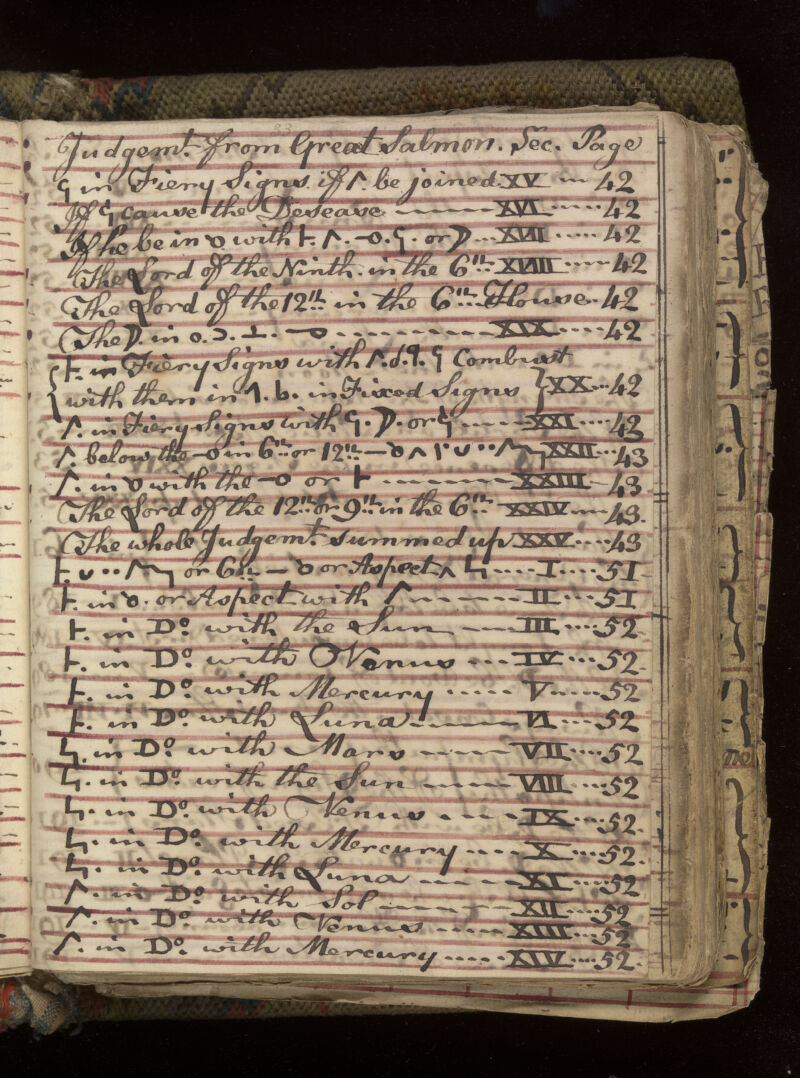 Judgemt. from Great Salmon. Sec. Page
in Fiery Signs if be joined XV 42
If cause the Desease XVI 42
If he be in with or XVII 42
The Lord of the Ninth in the 6th XVIII 42
The Lord of the 12th in the 6th House 42
The in XIX 42
in Fiery Signs with Combust
with them in in Fixed Signs XX 42
in Fiery Signs with or XXI 42
below the in 6th or 12th XXII 43
in with the or XXIII 43
The Lord of the 12th or 9th in the 6th XXIV 43.
The whole Judgemt. Summed up XXV 43
or 6th or Aspect I 51
in or Aspect with II 51
in Do. with the Sun III 52
in Do. with Venus IV 52
in Do. with Mercury V 52
in Do. with Luna VI 52
in Do. with Mars VII 52
in Do. with the Sun VIII 52
in Do. with Venus IX 52.
in Do. with Mercury X 52.
in Do. with Luna XI 52
in Do. with Sol XII 52
in Do. with Venus XIIII 52
in Do. with Mercury XIV 52.